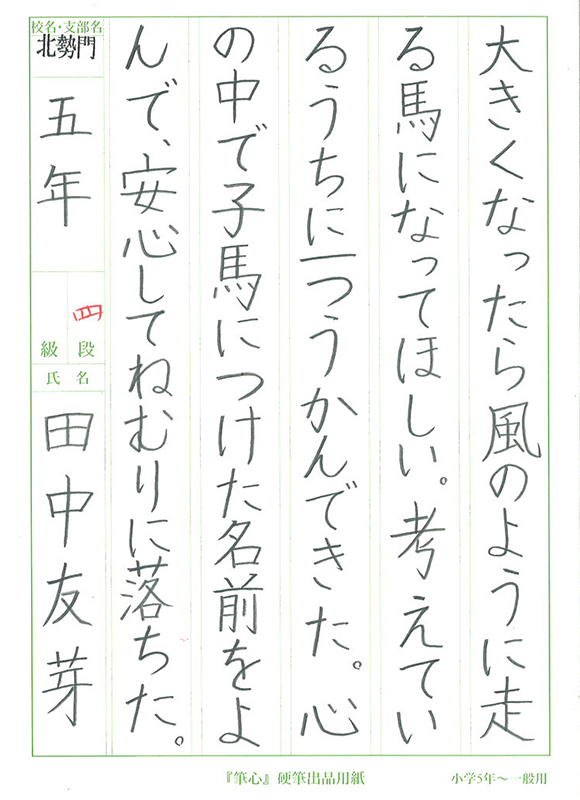 大きくなったら風のように走
る馬になってほしい。考えてい
るうちに一つうかんできた。心
の中で子馬につけた名前をよ
んで、安心してねむりに落ちた。
校名・支部名
北勢門
五年
四
級 段
氏名
田中友芽
『筆心』硬筆出品用紙
小学5年～一般用